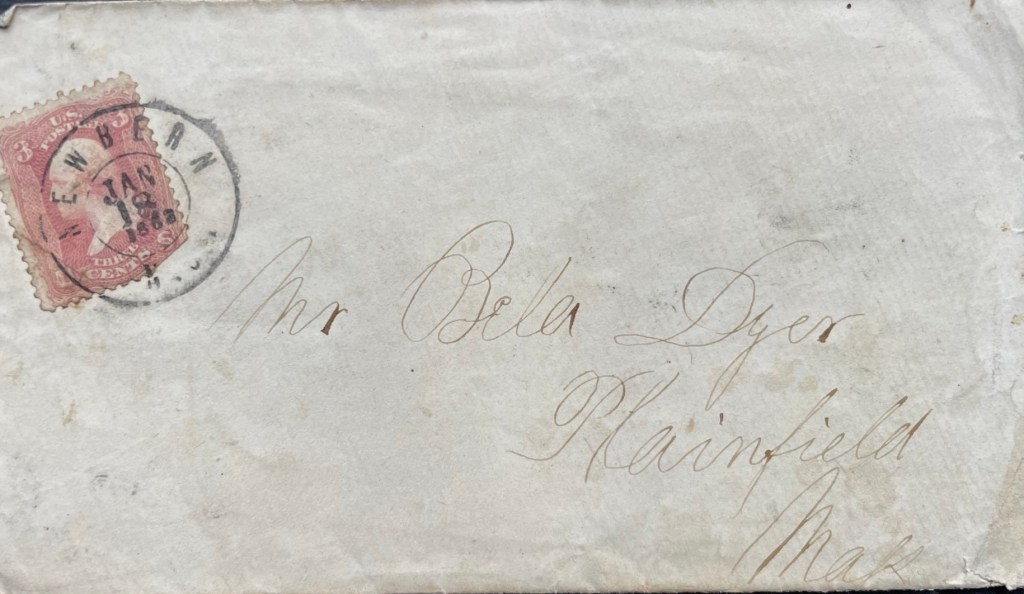 U.S.
POSTAGE
3 3
THREE
CENTS
NEWBERN
JAN
18
1863
N.C.
Mr Bela Dyer
Plainfield
Mass